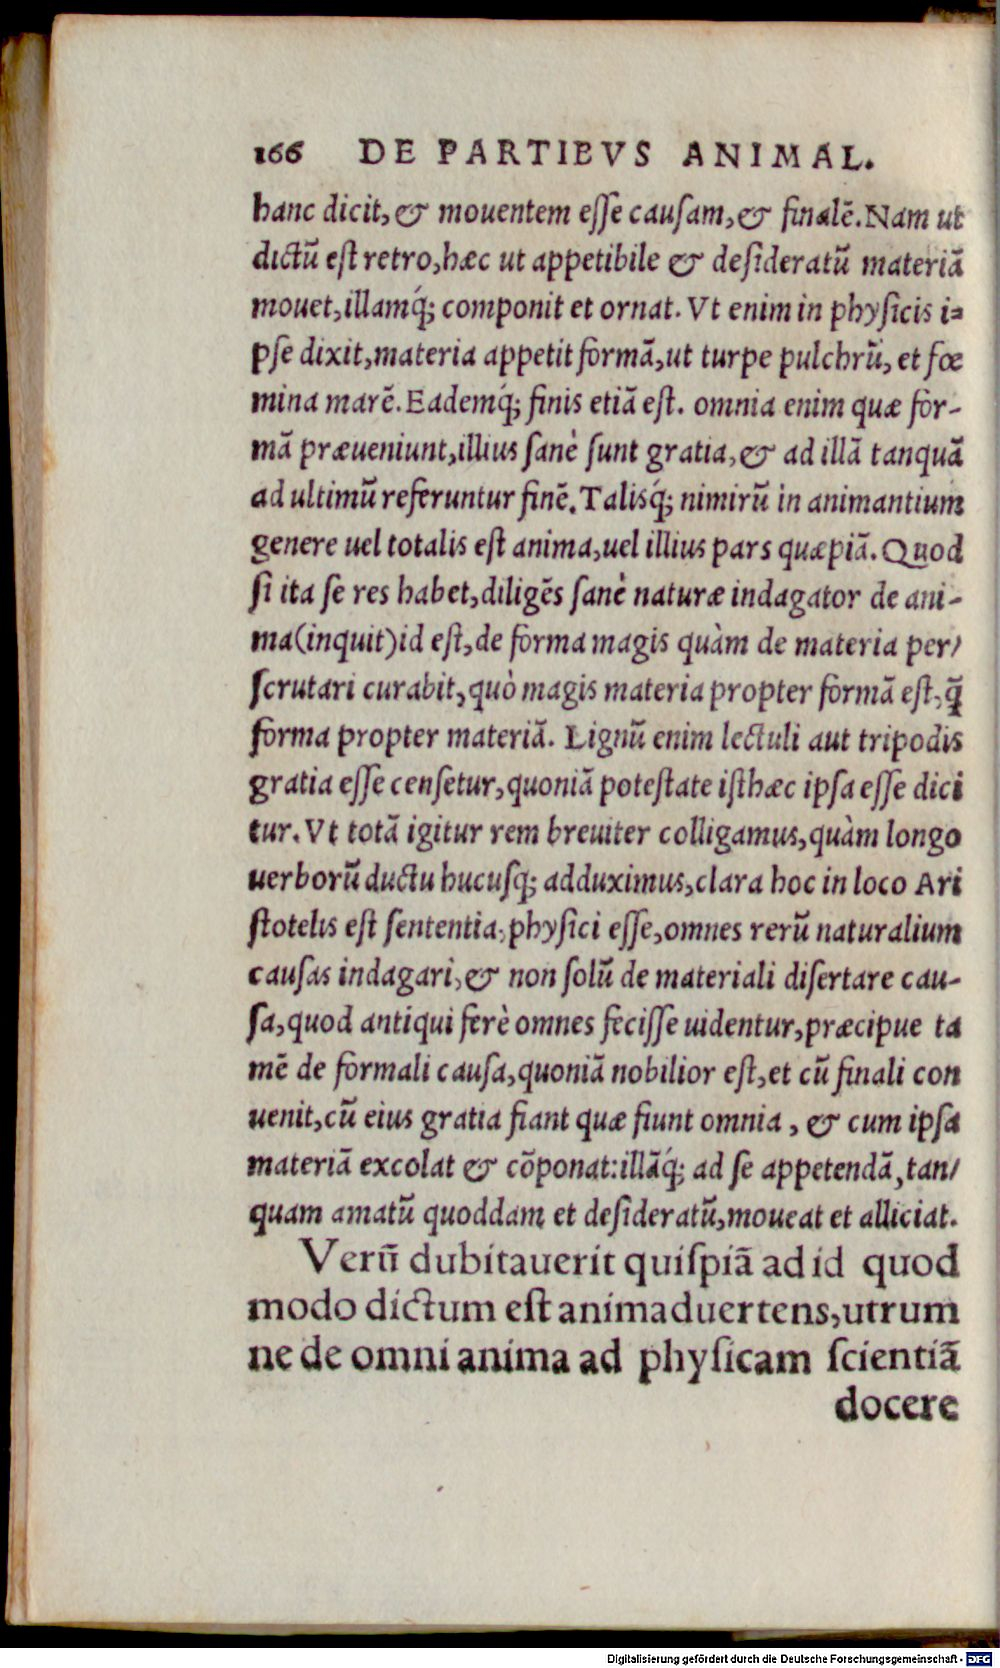 166 DE PARTIBVS ANIMAL.
hanc dicit, & mouentem esse causam, & finalē. Nam ut
dictū est retro, hæc ut appetibile & desideratū materiā
mouet, illamq́; componit et ornat. Vt enim in physicis i=
pse dixit, materia appetit formā, ut turpe pulchrū, et fœ
mina marē. Eademq́; finis etiā est. omnia enim quæ for-
mā præueniunt, illius sanè sunt gratia, & ad illā tanquā
ad ultimū referuntur finē. Talisq́; nimirū in animantium
genere uel totalis est anima, uel illius pars quæpiā. Quod
si ita se res habet, diligēs sanè naturæ indagator de ani-
ma (inquit) id est, de forma magis quàm de materia per/
scrutari curabit, quò magis materia propter formā est, q̄
forma propter materiā. Lignū enim lectuli aut tripodis
gratia esse censetur, quoniā potestate isthæc ipsa esse dici
tur. Vt totā igitur rem breuiter colligamus, quàm longo
uerborū ductu hucusq; adduximus, clara hoc in loco Ari
stotelis est sententia, physici esse, omnes rerū naturalium
causas indagari, & non solū de materiali disertare cau-
sa, quod antiqui ferè omnes fecisse uidentur, præcipue ta
mē de formali causa, quoniā nobilior est, et cū finali con
uenit, cū eius gratia fiant quæ fiunt omnia, & cum ipsa
materiā excolat & cōponat: illāq́; ad se appetendā, tan/
quam amatū quoddam et desideratū, moueat et alliciat.
Verū dubitauerit quispiā ad id quod
modo dictum est animaduertens, utrum
ne de omni anima ad physicam scientiā
docere
Digitalisierung gefördert durch die Deutsche Forschungsgemeinschaft - DFG